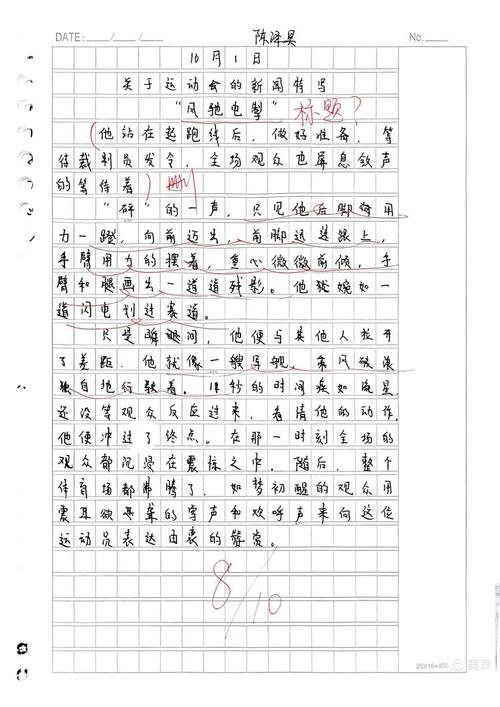 DATE: / / 陈泽昊 No.
10月1日
关于运动会的新闻特写
“风驰电掣” 标题?
他站在起跑线后,做好准备,等
待裁判员发令,全场观众也屏息敛声
的等待着
“砰”的一声,只见他后脚弯用
力一蹬,向前迈出,前脚迅速跟上,
手臂用力的摆着,重心微微前倾,手
臂和腿画出一道道残影。他犹如一
道闪电划过赛道。
只是瞬息间,他便与其他人拉开
了差距,他就像一艘导舰,乘风破浪
独自地行驶着。12秒的时间疾如流星,
还没等观众反应过来,看清他的动作,
他便冲过了终点。在那一时刻全场的
观众都沉浸在震惊之中,随后,整个
体育场都沸腾了,如梦初醒的观众用
震耳欲聋的掌声和欢呼声来向这位
运动员表达由衷的赞赏。
8/10
25X16=400